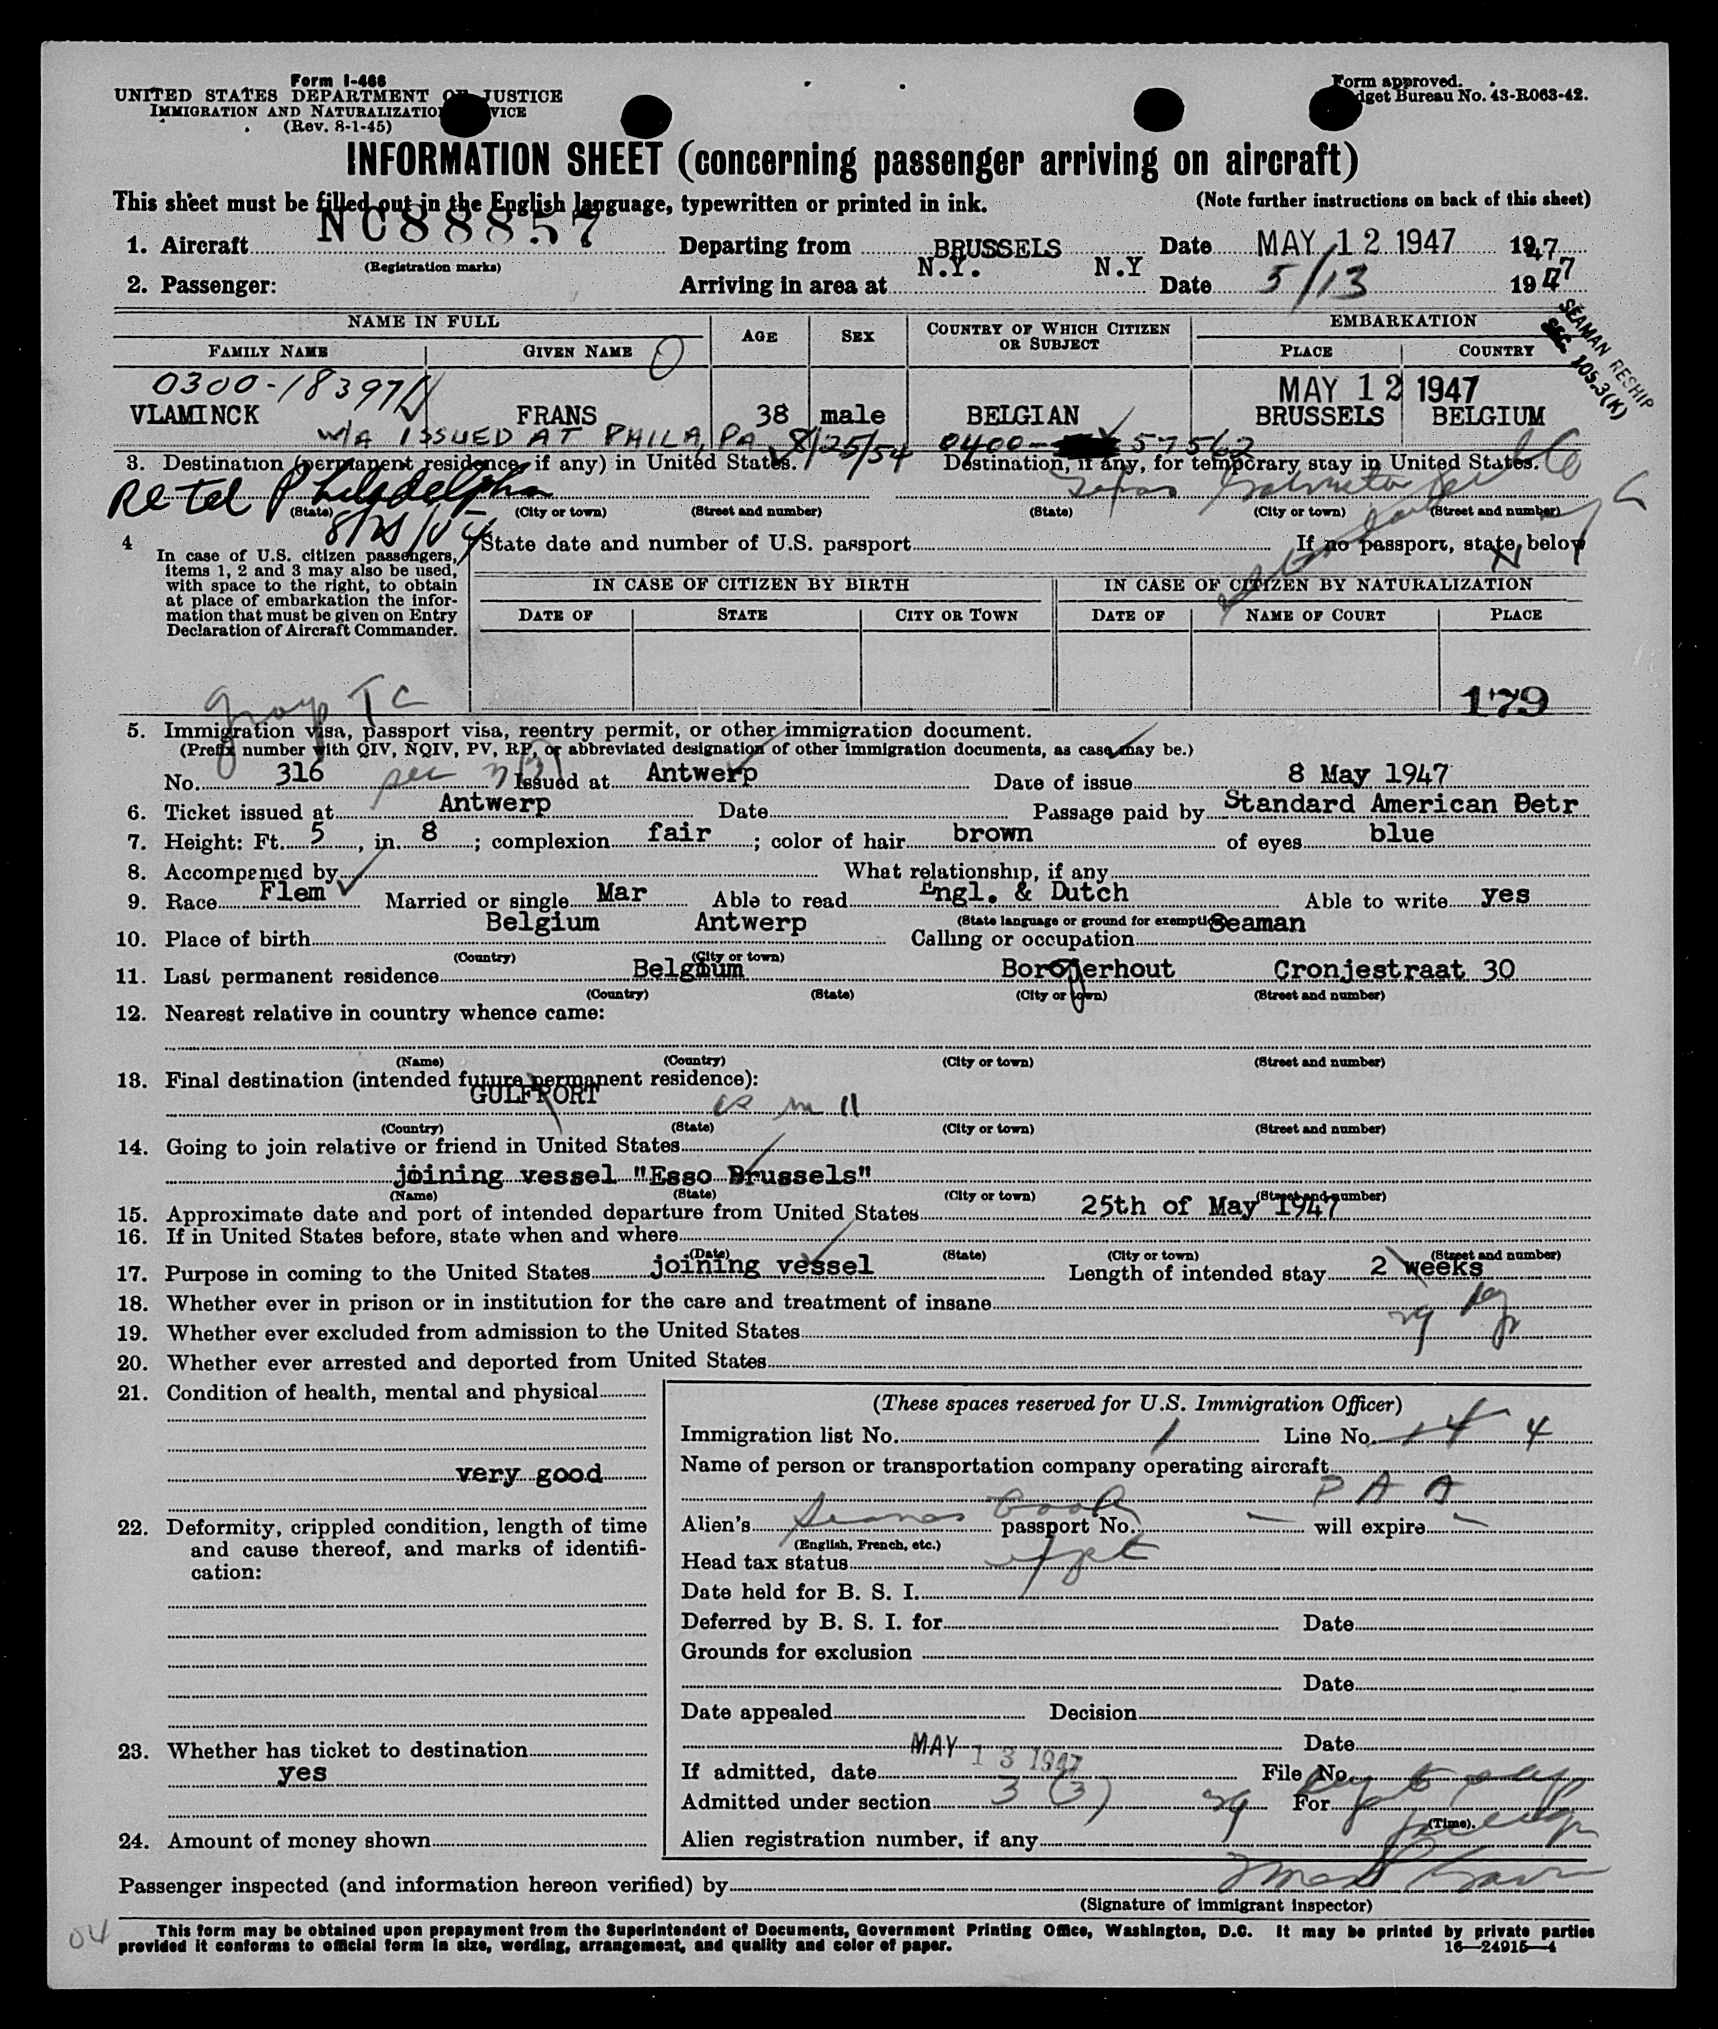 Form I-466
UNITED STATES DEPARTMENT OF JUSTICE
IMMIGRATION AND NATURALIZATION SERVICE
(Rev. 8-1-45)
Form approved.
Budget Bureau No. 43-R063-42.
INFORMATION SHEET (concerning passenger arriving on aircraft)
This sheet must be filled out in the English language, typewritten or printed in ink. (Note further instructions on back of this sheet)
1. Aircraft NC88857 Departing from BRUSSELS Date MAY 12 1947 1947
(Registration marks)
2. Passenger: Arriving in area at N.Y. N.Y Date 5/13 1947
SEAMAN RESHIP
SEC. 105.3(K)
NAME IN FULL AGE SEX COUNTRY OF WHICH CITIZEN OR SUBJECT EMBARKATION
FAMILY NAME GIVEN NAME PLACE COUNTRY
0300-183971 MAY 12 1947
VLAMINCK FRANS 38 male BELGIAN BRUSSELS BELGIUM
W/A ISSUED AT PHILA, PA 8/25/54 0400- 57562
3. Destination (permanent residence, if any) in United States. Destination, if any, for temporary stay in United States.
Re tel Philadelphia
(State) (City or town) (Street and number) (State) (City or town) (Street and number)
4 In case of U.S. citizen passengers, items 1, 2 and 3 may also be used, with space to the right, to obtain at place of embarkation the information that must be given on Entry Declaration of Aircraft Commander.
State date and number of U.S. passport If no passport, state below
IN CASE OF CITIZEN BY BIRTH IN CASE OF CITIZEN BY NATURALIZATION
DATE OF STATE CITY OR TOWN DATE OF NAME OF COURT PLACE
179
5. Immigration visa, passport visa, reentry permit, or other immigration document.
(Prefix number with QIV, NQIV, PV, RP, or abbreviated designation of other immigration documents, as case may be.)
No. 316 Issued at Antwerp Date of issue 8 May 1947
6. Ticket issued at Antwerp Date Passage paid by Standard American Petr
7. Height: Ft. 5, in. 8; complexion fair; color of hair brown of eyes blue
8. Accompanied by What relationship, if any
9. Race Flem Married or single Mar Able to read Engl. & Dutch Able to write yes
(State language or ground for exemption)
10. Place of birth Belgium Antwerp Calling or occupation Seaman
(Country) (City or town)
11. Last permanent residence Belgium Borgerhout Cronjestraat 30
(Country) (State) (City or town) (Street and number)
12. Nearest relative in country whence came:
(Name) (Country) (City or town) (Street and number)
13. Final destination (intended future permanent residence):
GULFPORT
(Country) (State) (City or town) (Street and number)
14. Going to join relative or friend in United States
joining vessel "Esso Brussels"
(Name) (State) (City or town) (Street and number)
15. Approximate date and port of intended departure from United States 25th of May 1947
16. If in United States before, state when and where
(Date) (State) (City or town) (Street and number)
17. Purpose in coming to the United States joining vessel Length of intended stay 2 weeks
18. Whether ever in prison or in institution for the care and treatment of insane
19. Whether ever excluded from admission to the United States
20. Whether ever arrested and deported from United States
21. Condition of health, mental and physical
very good
22. Deformity, crippled condition, length of time and cause thereof, and marks of identification:
23. Whether has ticket to destination
yes
24. Amount of money shown
(These spaces reserved for U.S. Immigration Officer)
Immigration list No. 1 Line No. 14 4
Name of person or transportation company operating aircraft
P A A
Alien's Seamans Book passport No. — will expire —
(English, French, etc.)
Head tax status
Date held for B. S. I.
Deferred by B. S. I. for Date
Grounds for exclusion
Date
Date appealed Decision
Date
If admitted, date MAY 13 1947 File No.
Admitted under section 3 (3) For
(Time).
Alien registration number, if any
Passenger inspected (and information hereon verified) by
(Signature of immigrant inspector)
04
This form may be obtained upon prepayment from the Superintendent of Documents, Government Printing Office, Washington, D.C. It may be printed by private parties
provided it conforms to official form in size, wording, arrangement, and quality and color of paper. 16—24915—4